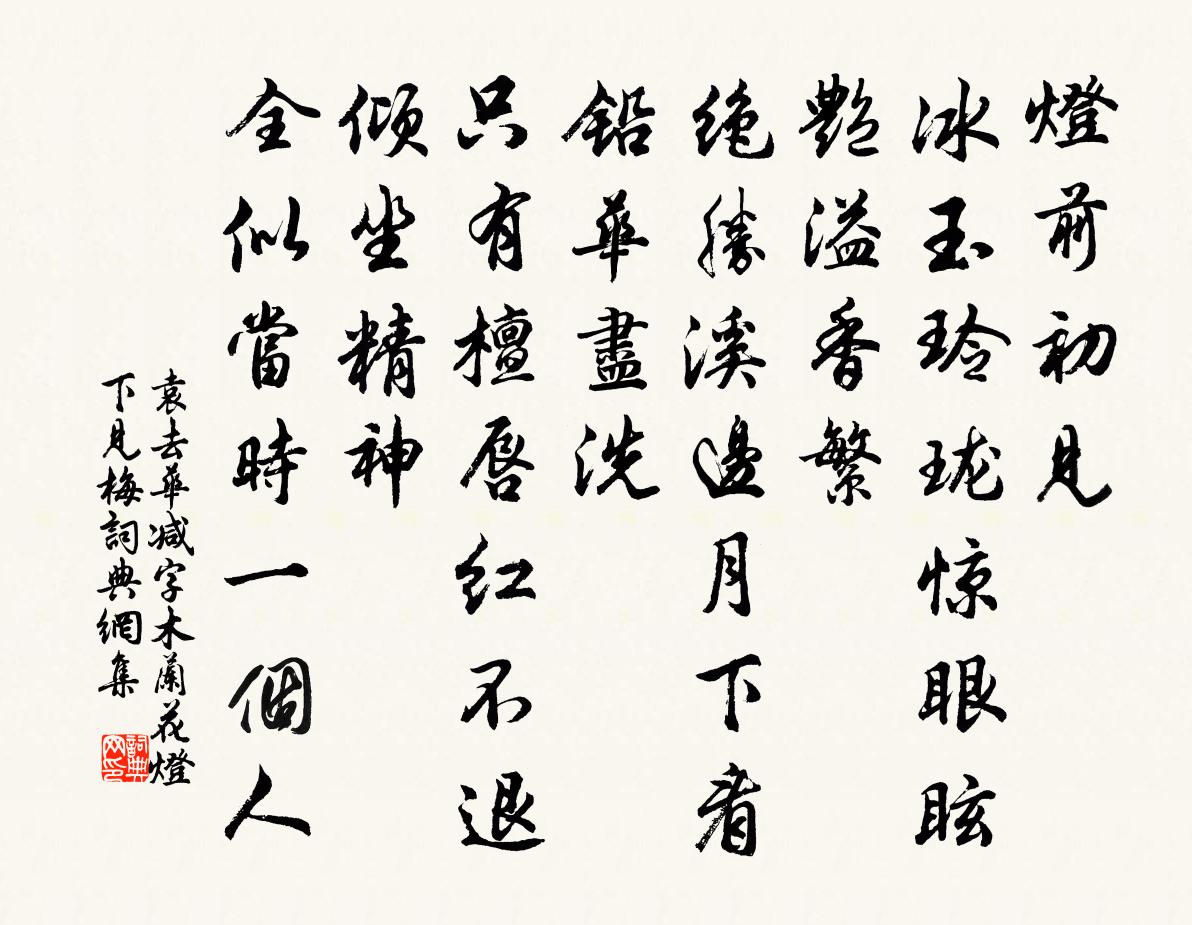 燈前初見
冰玉玲珑惊眼眩
艷溢香繁
絶勝溪邊月下看
铅華盡洗
只有檀唇红不退
倾坐精神
全似當時一個人
袁去華减字木蘭花燈
下見梅詞典網集
詞典
网印